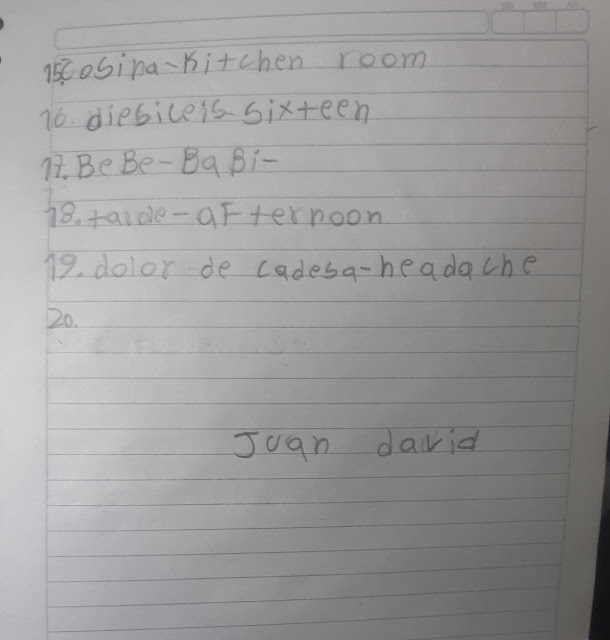 15. Cosina-Kitchen room
16. diesiceis-sixteen
17. BeBe-BaBi-
18. tarde-aFternoon
19. dolor de cadesa-headache
20.
Juan david